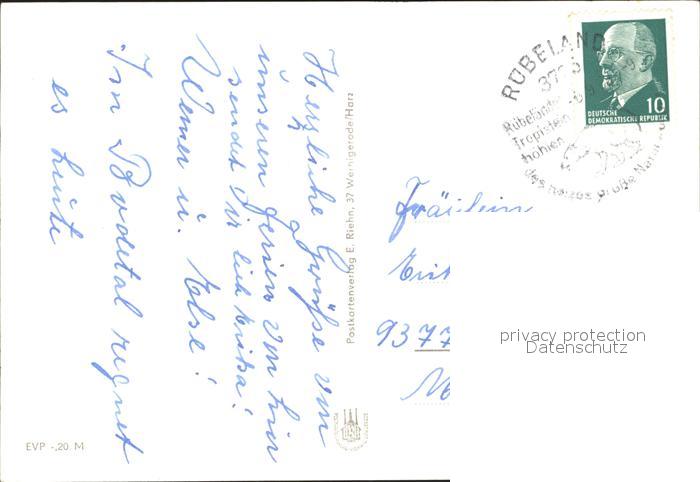 Herzliche Grüße von
unseren Ferien von hier
sendet Dir lieb Erika!
Werner u. Else!
Im Bodetal regnet
es heute
Postkartenverlag E. Riehn, 37 Wernigerode/Harz
EVP -,20. M
RÜBELAND
Rübeländer
Tropfstein-
höhlen
des Harzes große Natur
DEUTSCHE
DEMOKRATISCHE REPUBLIK
10
Fräulein
9377
privacy protection
Datenschutz